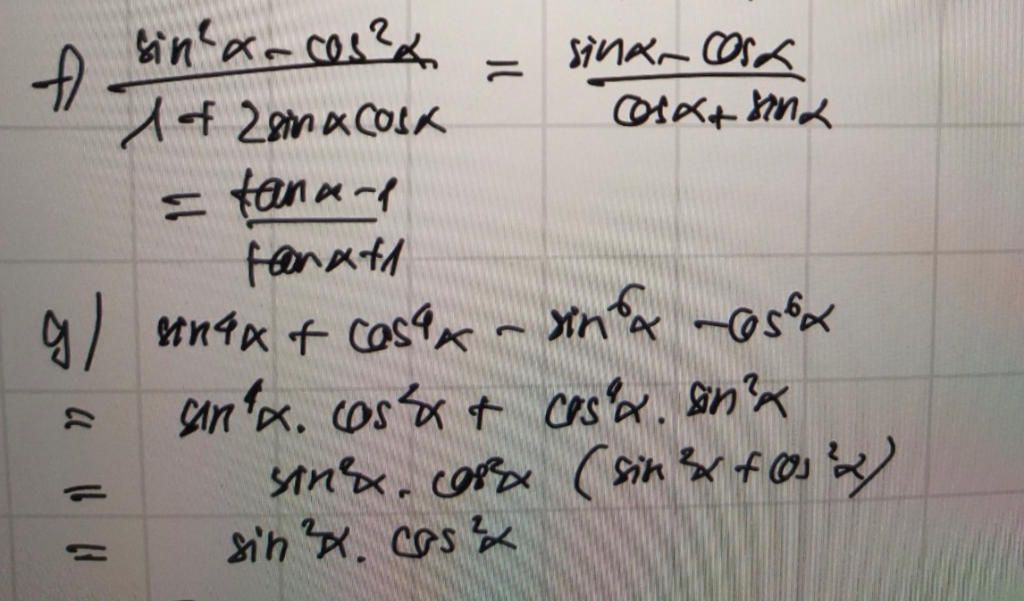 f) (sin²α - cos²α) / (1 + 2sinαcosα) = (sinα - cosα) / (cosα + sinα)
= (tanα - 1) / (tanα + 1)
g) sin⁴α + cos⁴α - sin⁶α - cos⁶α
= sin⁴α . cos²α + cos⁴α . sin²α
= sin²α . cos²α (sin²α + cos²α)
= sin²α . cos²α